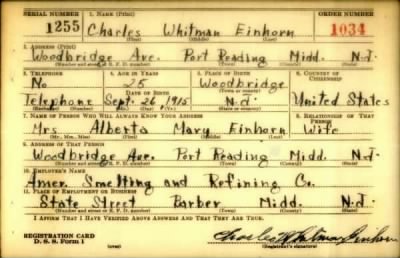 SERIAL NUMBER 1. NAME (Print) ORDER NUMBER
1255 Charles Whitman Einhorn 1034
(First) (Middle) (Last)
2. ADDRESS (Print)
Woodbridge Ave. Port Reading Midd. N.J.
(Number and street or R. F. D. number) (Town) (County) (State)
3. TELEPHONE 4. AGE IN YEARS 5. PLACE OF BIRTH 6. COUNTRY OF CITIZENSHIP
No 25 Woodbridge
(Town or county)
Telephone Sept. 26 1915 N.J. United States
7. NAME OF PERSON WHO WILL ALWAYS KNOW YOUR ADDRESS 8. RELATIONSHIP OF THAT PERSON
Mrs Alberta Mary Einhorn Wife
(Mr., Mrs., Miss) (First) (Middle) (Last)
9. ADDRESS OF THAT PERSON
Woodbridge Ave. Port Reading Midd. N.J.
(Number and street or R. F. D. number) (Town) (County) (State)
10. EMPLOYER'S NAME
Amer. Smelting and Refining Co.
11. PLACE OF EMPLOYMENT OR BUSINESS
State Street Barber Midd. N.J.
(Number and street or R. F. D. number) (Town) (County) (State)
I AFFIRM THAT I HAVE VERIFIED ABOVE ANSWERS AND THAT THEY ARE TRUE.
REGISTRATION CARD
D. S. S. Form 1 (over) Charles Whitman Einhorn
(Registrant's signature)